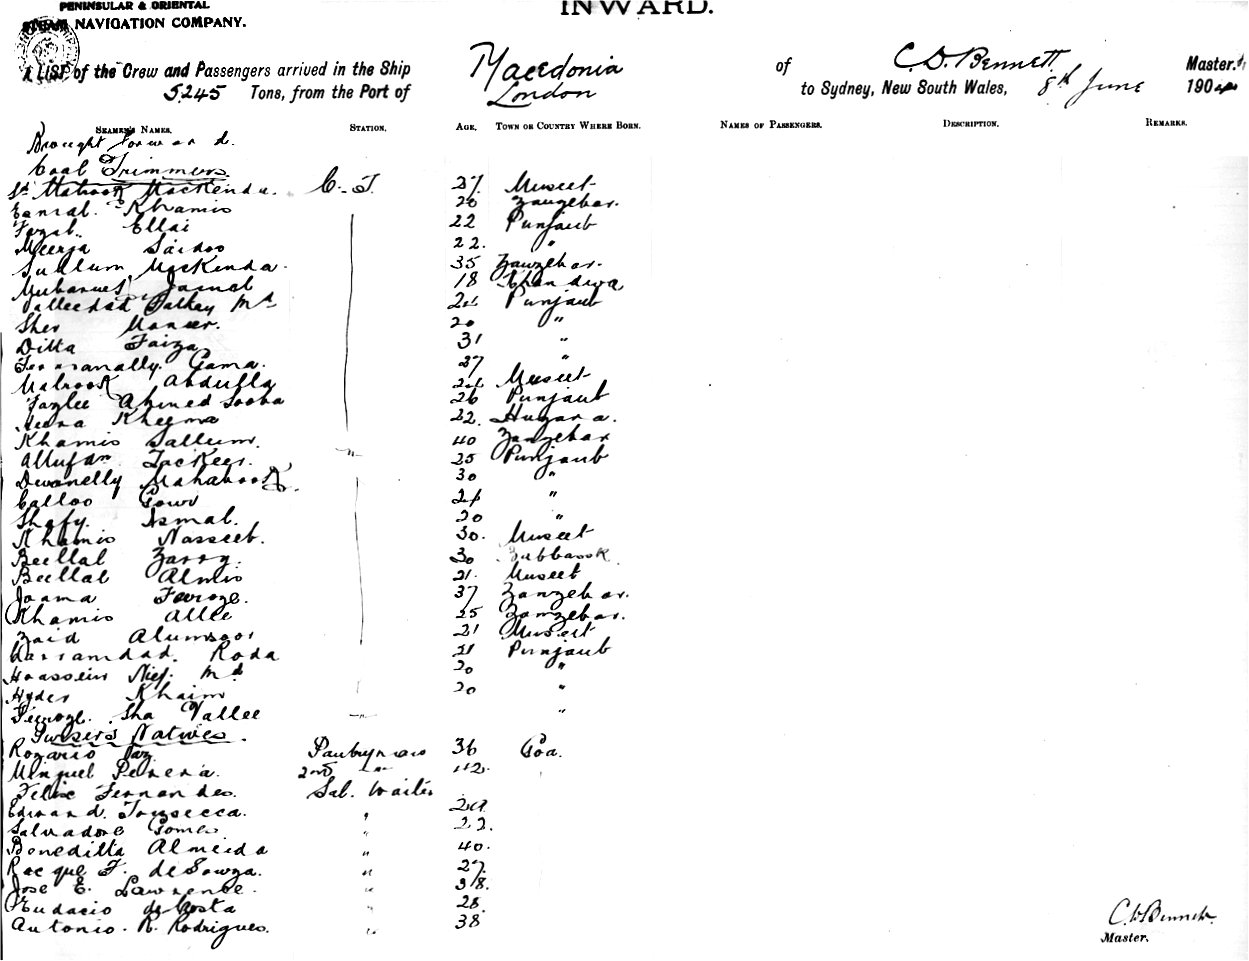 PENINSULAR & ORIENTAL
STEAM NAVIGATION COMPANY.
INWARD.
A LIST of the Crew and Passengers arrived in the Ship Macedonia of C. D. Bennett Master.
5245 Tons, from the Port of London to Sydney, New South Wales, 8th June 190
SEAMEN'S NAMES. STATION. AGE. TOWN OR COUNTRY WHERE BORN. NAMES OF PASSENGERS. DESCRIPTION. REMARKS.
Brought forward.
Coal Trimmers
Mabrook Mackenda. C. T. 27 Muscet
Khamis 20 Zangebar.
Fazal Ellai 22 Punjaub
Meerza Saidoo 22. "
Sullum Mackenda. 35 Zanzebar.
Mubarus Jamal 18
Valleedad Md 24 Punjaub
Sher 20 "
Ditta Faiza 31 "
Gama. 27 "
Mabrook Abdulla 24 Muscet
Fazlee Ahmed Sooba 26 Punjaub
Kheema 22. Huzara.
Khamis Sallum. 40 Zanzebar
25 Punjaub
Dewanelly Mahabook 30 "
Calloo 24 "
Shafy. Ismal. 20 "
Khamis Nasseeb. 30. Muscet
Beellal 30
Beellal Almis 21. Muscet
Jooma Feroze. 37 Zanzebar.
Khamis Allee 25 Zanzebar.
Zaid 21 Muscet
Karramdad. Roda 21 Punjaub
Hoossein Md 20 "
Hyder Khaim 20 "
Feroze. Sha Vallee "
Pursers Natives.
Rogario Vaz Pantryman 36 Goa.
Minguel Perera. 2nd "
Felix Fernandes. Sal. Waiter
Edward. Fonsecca. " 29
Salvadore Gomes " 22.
Beneditta Almeida " 40.
Rocque F. deSouza. " 27.
Jose E. Lawrence. " 38.
Eudacio da Costa " 28
Antonio. R. Rodrigues. " 38
C. D. Bennett
Master.